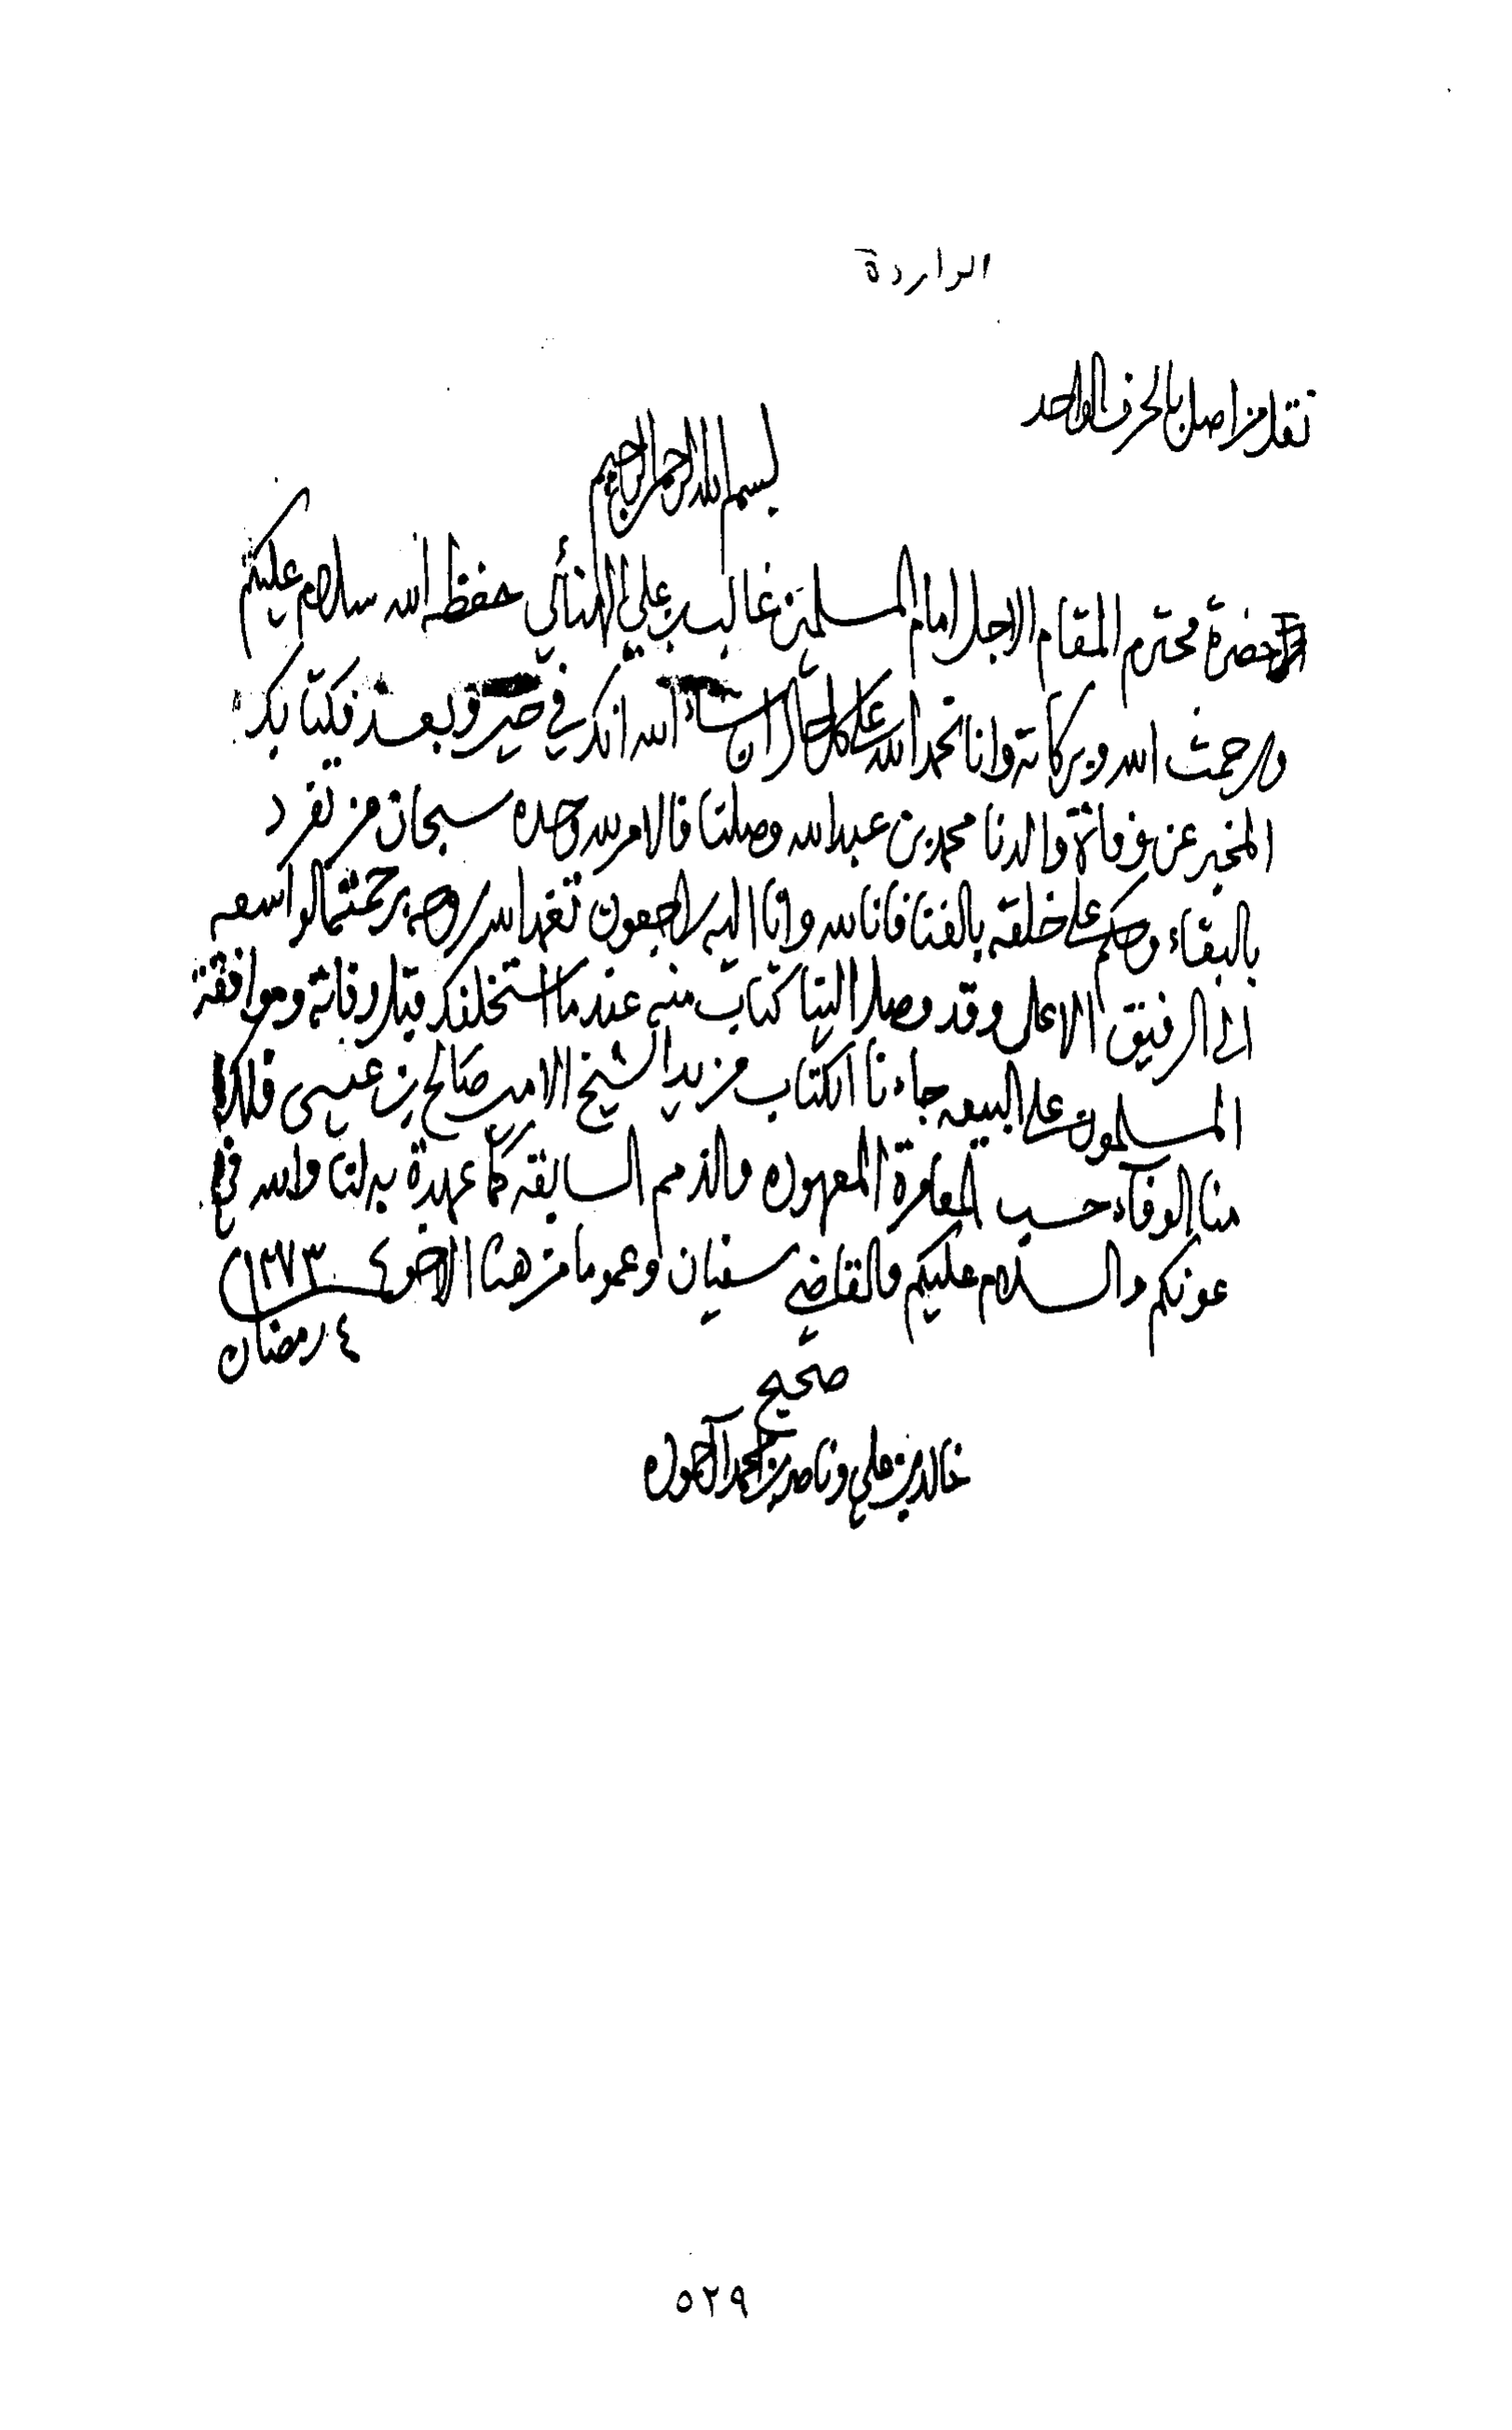 الواردة
نقل من اصل بالحرف الواحد
بسم الله الرحمن الرحيم
حضرة محترم المقام الاجل امام المسلمين غالب بن علي الهنائي حفظه الله سلام عليكم
ورحمت الله وبركاته وانا نحمد الله على كل حال ان شاء الله انكم في خير وبعد فكتابكم
المخبر عن وفاة والدنا محمد بن عبدالله وصلنا فالامر لله وحده سبحان من تفرد
بالبقاء وحكم على خلقه بالفنا فانا لله وانا اليه راجعون تغمد الله روحه برحمته الواسعه
الى الرفيق الاعلى وقد وصل الينا كتاب منه عندما استخلفكم قبل وفاته وموافقة
المسلمون على البيعه جاءنا الكتاب من يد الشيخ الامير صالح بن عيسى فلكم
منا الوفاء حسب المعاهدة المعهوده والذمم السابقه كما عهدة به لنا والله في
عونكم والسلام عليكم والقاضي سفيان وعموما من هنا الاخوة ١٣٧٣
٤ رمضان
صحيح
خالد بن علي وناصر بن احمد آل حموده
٥٢٩